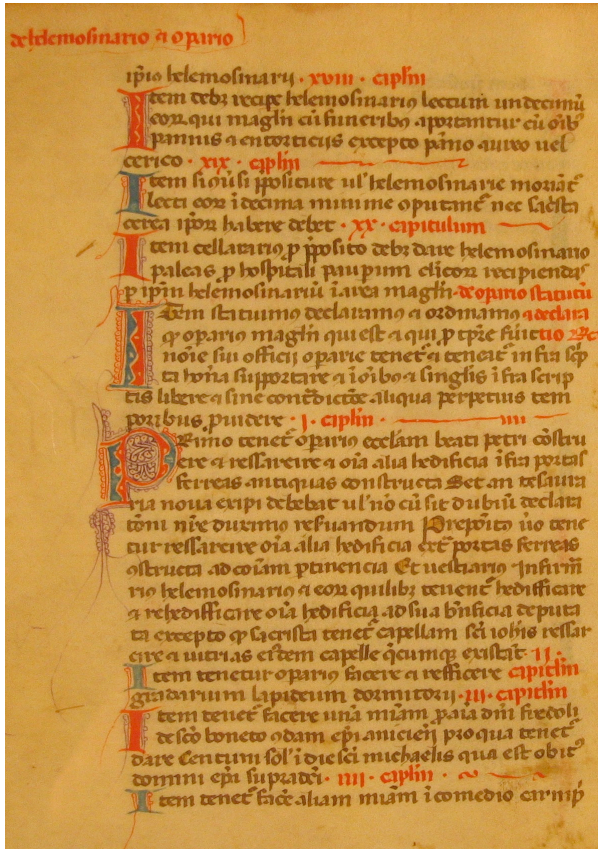 de helemosinario ⁊ operario
ip̄iꝰ helemosinarij · xviii · cap̄lm
Item debꝫ recipe helemosinariꝰ lectum undecimū
cor qui magl̄n cū funeribꝰ aportantur cū oibꝫ
pannis ⁊ entorticiis excepto pāno aureo vel
cerico · xix · cap̄lm
Item si q̄ui si p̄positure ul' helemosinarie moriāt᷑
lecti cor ī decima minime oputant᷑ nec sac̄sta
cerea ip̄or habere debet · xx · capitulum
Item cellararius p̄ p̄posito debꝫ dare helemosinario
paleas p̄ hospitali paupum
p ip̄m helemosinariū ī area magl̄n · de opario statutū
Item statuimus declaramus ⁊ ordinamus ⁊ declara
qꝫ opariꝰ magl̄n qui est ⁊ qui p̄ tp̄re fūit tio
noīe sui officij oparie tenet᷑ ⁊ teneat᷑ in fra sc̄p
ta hon̄a supportare ⁊ ī oibꝰ ⁊ singl̄is ī fra scrip
tis libere ⁊ sine cont̄dictōe aliqua perpetuis tem
poribus p̄uidere · i · cap̄lm · iiii
Primo tenet᷑ opariꝰ eccl̄am beati petri cōstru
ere ⁊ ressarcire ⁊ oīa alia hedificia ī fra portas
ferreas antiquas constructa Set an thesaura
ria nova erigi debebat ul' nō cū sit dubiū declara
tōni nr̄e duximus res̄uandum Prepoitꝰ ūo tene
tur ressarcire oīa alia hedificia ext᷑ portas ferreas
ꝯstructa ad coīam p̄tinencia Et vestiariꝰ Infirm̄
riꝰ helemosinariꝰ ⁊ eor quilibꝫ tenent᷑ hedifficare
⁊ rehedifficare oīa hedificia ad sua bn̄ficia deputa
ta excepto qꝫ sacrista tenet᷑ capellam sc̄i ioh̄is ressar
cire ⁊ vitrias eiꝰdem capelle q̄cumqꝫ existat · ii ·
Item tenetur opariꝰ facere ⁊ refficere capitl̄m
gradarium lapideum dormitorij · iii · capitl̄m
Item tenet᷑ facere unā miām p aīa dn̄i fredoli
de sc̄o boneto ꝯdam ep̄i anicien̄ pro qua tenet᷑
dare Centum sōl' ī die sc̄i michaelis qua est obitꝰ
domini ep̄i supradc̄i · iiii · cap̄lm
Item tenet᷑ fac̄e aliam miām ī comedio